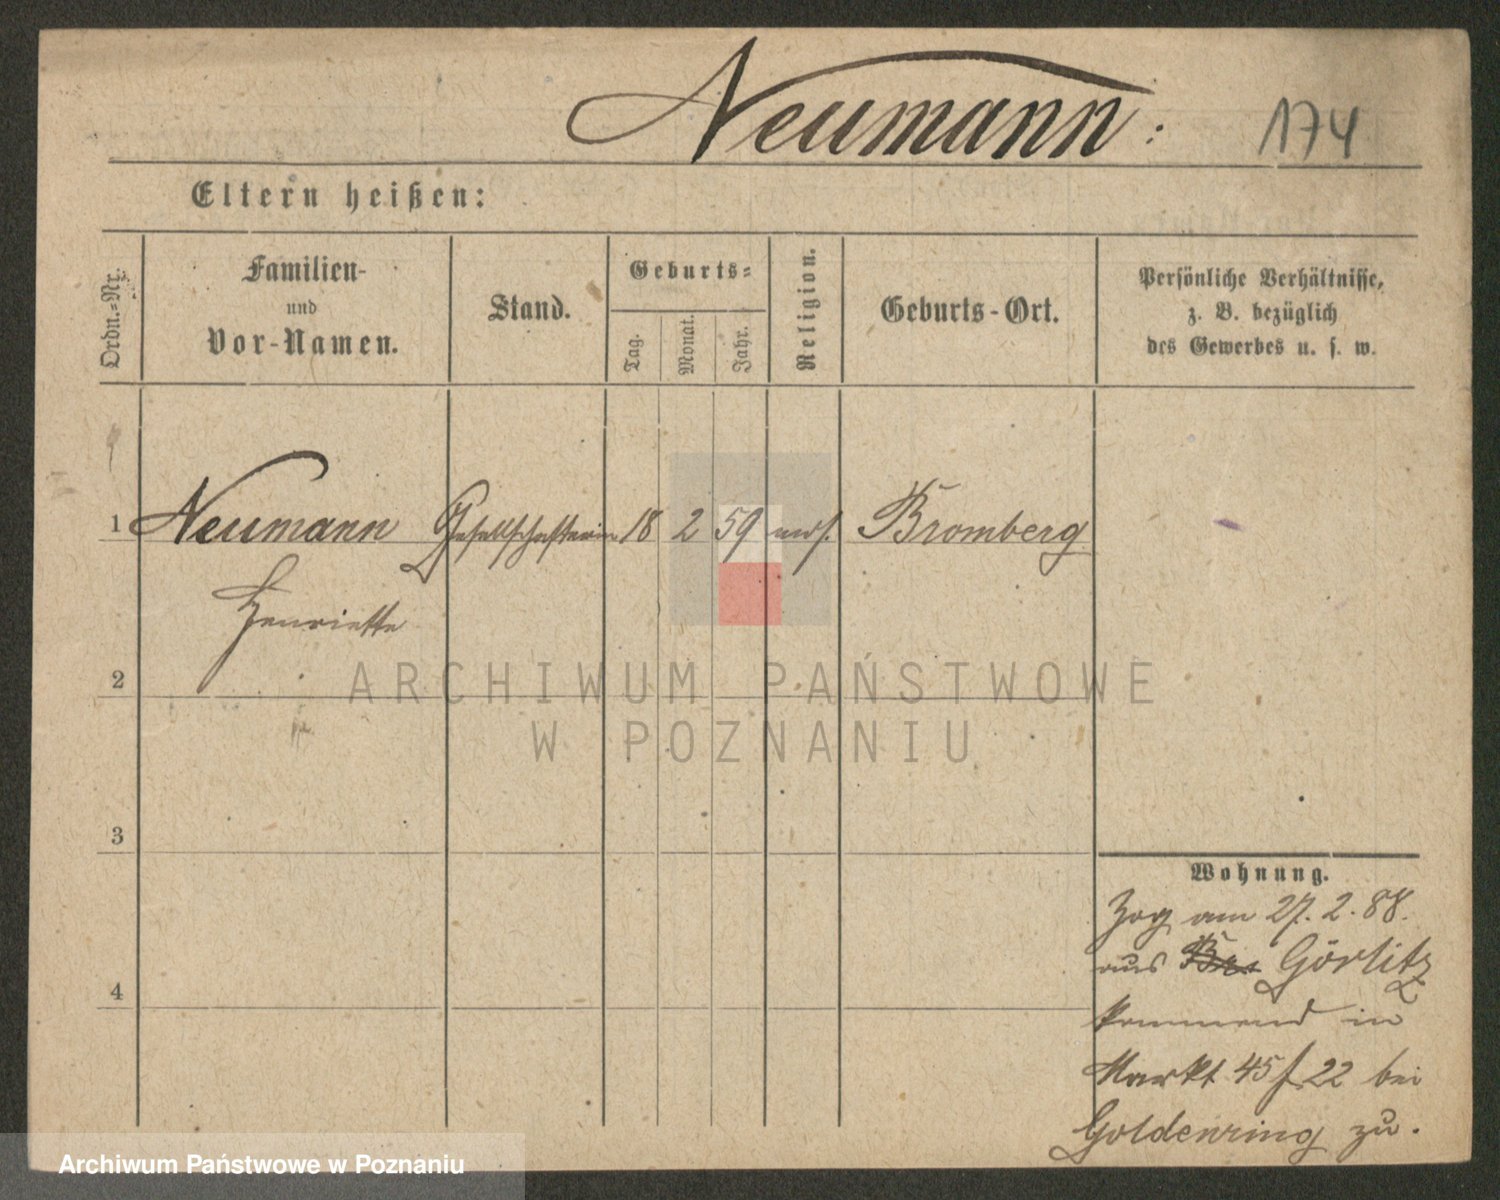 Neumann:
174
Eltern heißen:
Ordn.-Nr.
Familien-
und
Vor-Namen.
Stand.
Geburts-
Tag.
Monat.
Jahr.
Religion.
Geburts-Ort.
Persönliche Verhältnisse,
z. B. bezüglich
des Gewerbes u. s. w.
1 Neumann Gesellschafterin 18 2 59 mos. Bromberg
Henriette
2
3
4
Wohnung.
Zog am 27. 2. 88.
aus Görlitz
kommend in
Markt 45/22 bei
Goldenring zu.
ARCHIWUM PAŃSTWOWE
W POZNANIU
Archiwum Państwowe w Poznaniu